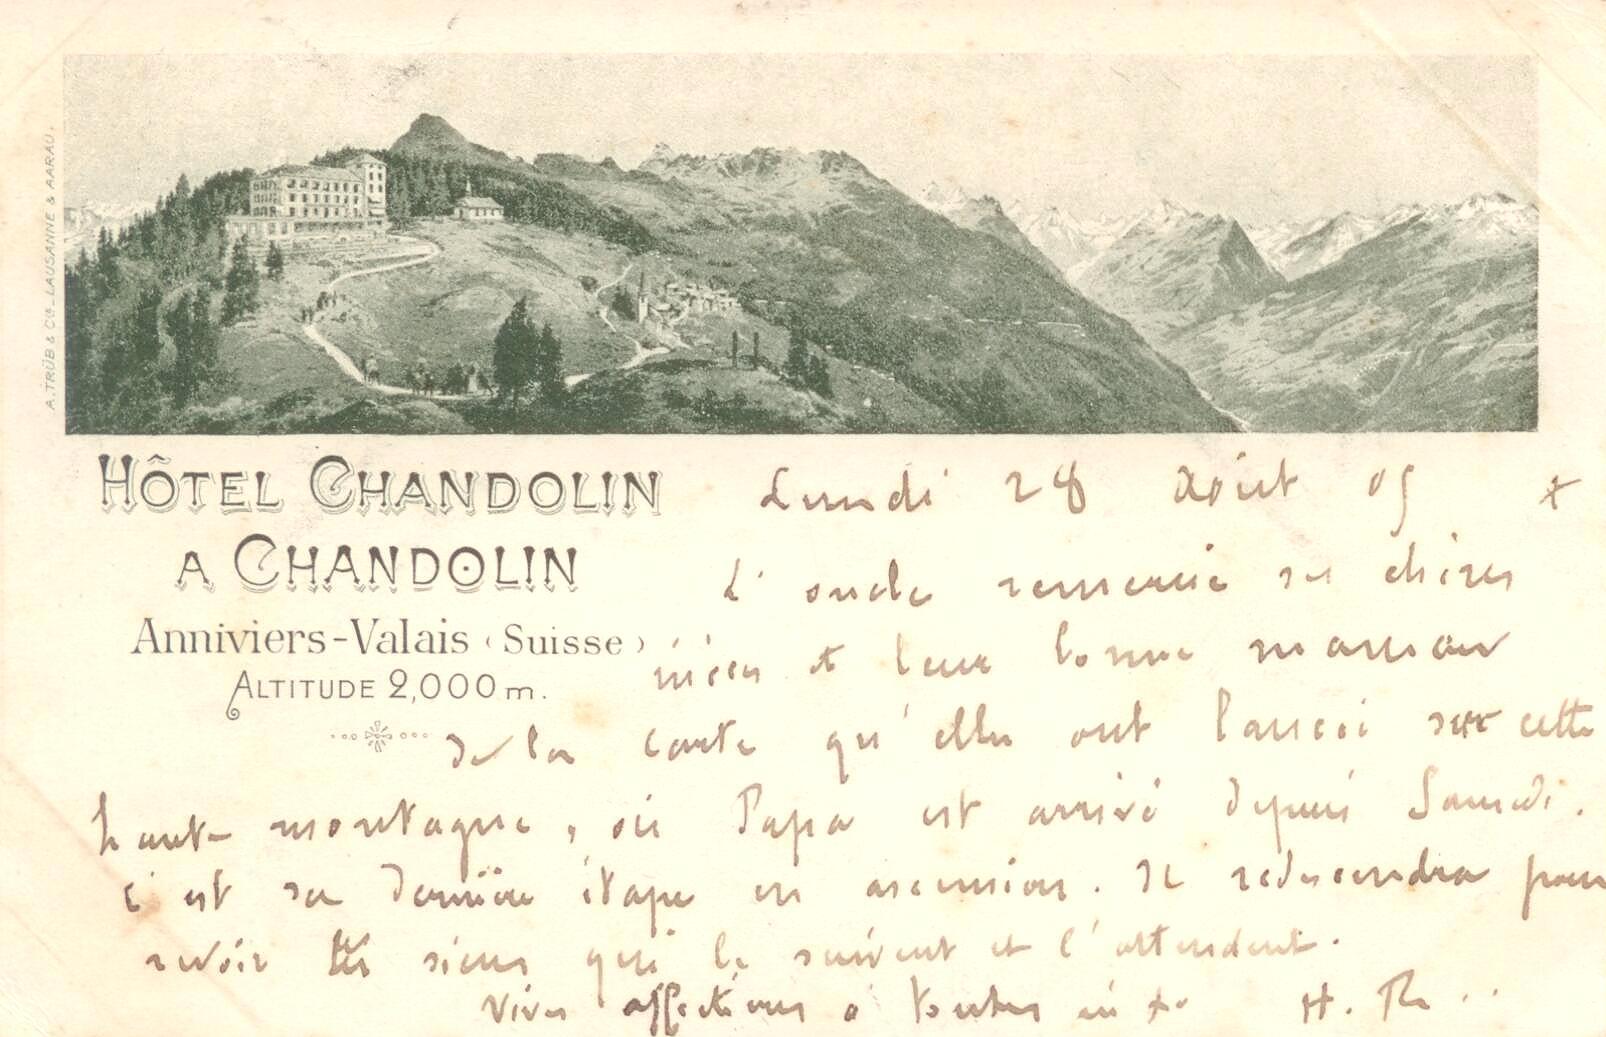 A. TRÜB & Cie. LAUSANNE & AARAU.
HÔTEL CHANDOLIN
A CHANDOLIN
Anniviers-Valais (Suisse)
ALTITUDE 2,000 m.
Lundi 28 Août 05 +
L'oncle remercie ses chères
nièces et leur bonne maman
de la carte qu'elles ont lancée sur cette
haute montagne, où Papa est arrivé depuis Samedi.
C'est sa dernière étape en ascension. Il redescendra pour
revoir les siens qui le suivent et l'attendent.
Vives affections à toutes en +. H. R...